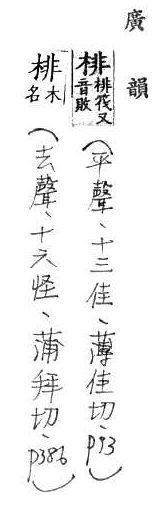 廣韻
排 排筏又音敗 (平聲、十三佳、薄佳切、p93)
排 木名 (去聲、十六怪、蒲拜切、p386)